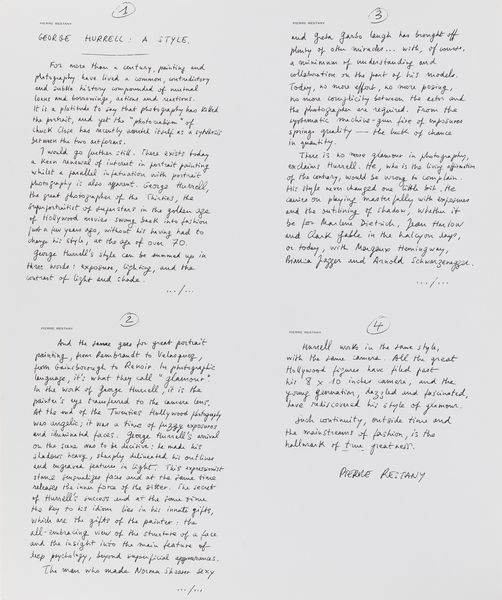 1
PIERRE RESTANY
GEORGE HURRELL : A STYLE.
For more than a century, painting and
photography have lived a common, contradictory
and subtle history compounded of mutual
loans and borrowings, actions and reactions.
It is a platitude to say that photography has killed
the portrait, and yet the "photorealism" of
Chuck Close has recently asserted itself as a synthesis
between the two artforms.
I would go further still. There exists today
a keen renewal of interest in portrait painting
whilst a parallel infatuation with portrait
photography is also apparent. George Hurrell,
the great photographer of the Thirties, the
superportraitist of superstars in the golden age
of Hollywood movies swung back into fashion
just a few years ago, without his having had to
change his style, at the age of over 70.
George Hurrell's style can be summed up in
three words: exposure, lighting, and the
contrast of light and shade.
.../...
2
PIERRE RESTANY
And the same goes for great portrait
painting, from Rembrandt to Velasquez,
from Gainsborough to Renoir. In photographic
language, it's what they call "glamour".
In the work of George Hurrell, it is the
painter's eye transferred to the camera lens.
At the end of the Twenties Hollywood photography
was angelic; it was a time of fuzzy exposures
and illuminated faces. George Hurrell's arrival
on the scene was to be decisive: he made his
shadows heavy, sharply delineated his outlines
and engraved features in light. This expressionist
stance sensualizes faces and at the same time
releases the inner force of the sitter. The secret
of Hurrell's success and at the same time
the key to his idiom lies in his innate gifts,
which are the gifts of the painter: the
all-embracing view of the structure of a face
and the insight into the main feature of
deep psychology, beyond superficial appearances.
The man who made Norma Shearer sexy
.../...
3
PIERRE RESTANY
and Greta Garbo laugh has brought off
plenty of other miracles... with, of course,
a minimum of understanding and
collaboration on the part of his models.
Today, no more effort, no more posing,
no more complicity between the actor and
the photographer are required. From the
systematic machine-gun fire of exposures
springs quality — the luck of chance
in quantity.
There is no more glamour in photography,
exclaims Hurrell. He, who is the living affirmation
of the century, would be wrong to complain.
His style never changed one little bit. He
carries on playing masterfully with exposures
and the outlining of shadow, whether it
be for Marlene Dietrich, Jean Harlow
and Clark Gable in the halcyon days,
or today, with Margaux Hemingway,
Bianca Jagger and Arnold Schwarzenegger.
.../...
4
PIERRE RESTANY
Hurrell works in the same style,
with the same camera. All the great
Hollywood figures have filed past
his 8 x 10 inches camera, and the
young generation, dazzled and fascinated,
have rediscovered his style of glamour.
Such continuity, outside time and
the mainstreams of fashion, is the
hallmark of true greatness.
PIERRE RESTANY